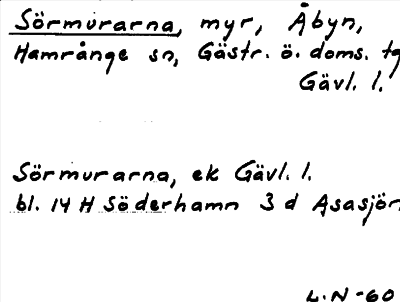 Sörmurarna, myr, Åbyn,
Hamrånge sn, Gästr. ö. doms. tg
Gävl. l.
Sörmurarna, ek Gävl. l.
bl. 14 H Söderhamn 3 d Asasjön
L.N-60